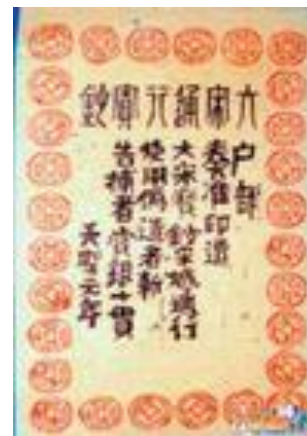 大宋通行寶鈔
户部
奏准印造
大宋寶鈔行
使用偽造者斬
告捕者賞銀十貫
天聖元年